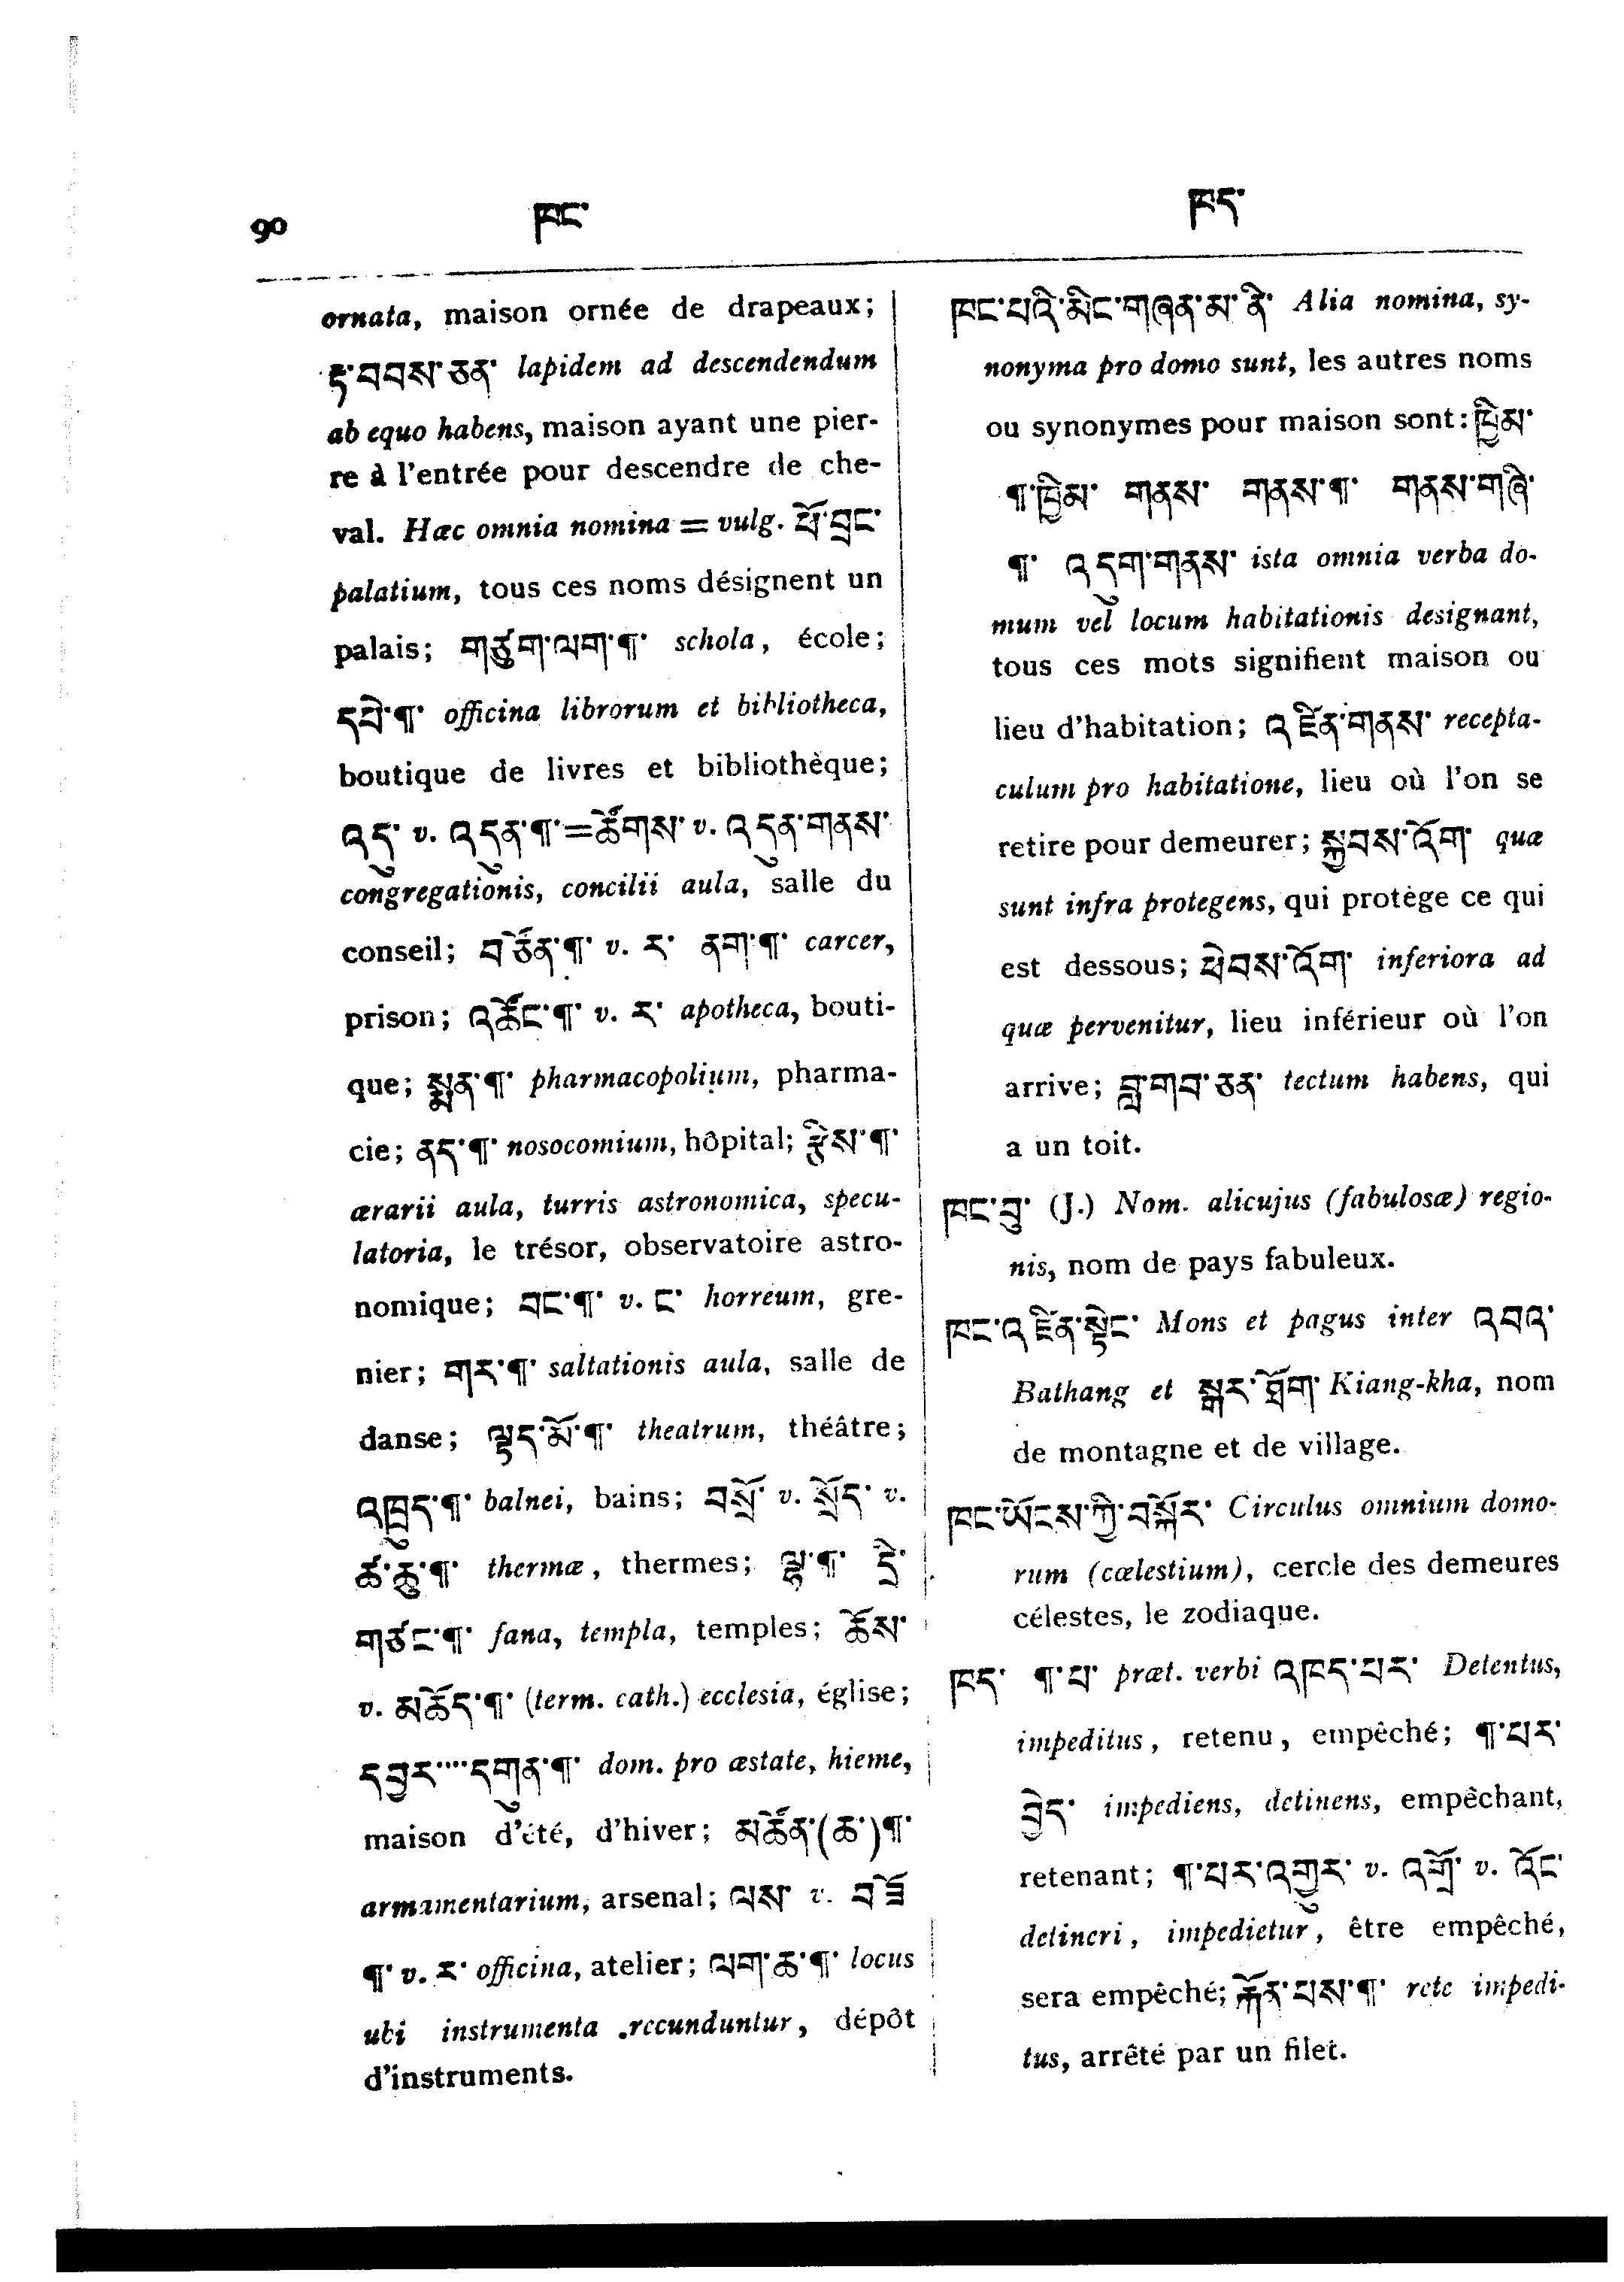 90 ཁང་ ཁད་
ornata, maison ornée de drapeaux;
རྟ་བབས་ཅན་ lapidem ad descendendum
ab equo habens, maison ayant une pier-
re à l'entrée pour descendre de che-
val. Hæc omnia nomina = vulg. ཕོ་བྲང་
palatium, tous ces noms désignent un
palais; གཙུག་ལག་¶་ schola, école;
དཔེ་¶་ officina librorum et bibliotheca,
boutique de livres et bibliothèque;
འདུ་ v. འདུན་¶་=ཚོགས་ v. འདུན་གནས་
congregationis, concilii aula, salle du
conseil; བཙོན་¶་ v. ར་ ནག་¶་ carcer,
prison; འཚོང་¶་ v. ར་ apotheca, bouti-
que; སྨན་¶་ pharmacopolium, pharma-
cie; ནད་¶་ nosocomium, hôpital; རྩིས་¶་
ærarii aula, turris astronomica, specu-
latoria, le trésor, observatoire astro-
nomique; བང་¶་ v. ང་ horreum, gre-
nier; གར་¶་ saltationis aula, salle de
danse; ལྟད་མོ་¶་ theatrum, théâtre;
འཁྲུད་¶་ balnei, bains; བསྲོ་ v. སྲོད་ v.
ཚ་ཆུ་¶་ thermæ, thermes; ལྷ་¶་ དྲི་
གཙང་¶་ fana, templa, temples; ཆོས་
v. མཆོད་¶་ (term. cath.) ecclesia, église;
དབྱར་····དགུན་¶་ dom. pro æstate, hieme,
maison d'été, d'hiver; མཚོན་(ཆ་)¶་
armamentarium, arsenal; ལས་ v. བཟོ
¶་ v. ར་ officina, atelier; ལག་ཆ་¶་ locus
ubi instrumenta recunduntur, dépôt
d'instruments.
ཁང་པའི་མིང་གཞན་མ་ནི་ Alia nomina, sy-
nonyma pro domo sunt, les autres noms
ou synonymes pour maison sont: ཁྱིམ་
¶་ཁྱིམ་ གནས་ གནས་¶་ གནས་གཞི་
¶་ འདུག་གནས་ ista omnia verba do-
mum vel locum habitationis designant,
tous ces mots signifient maison ou
lieu d'habitation; འཛིན་གནས་ recepta-
culum pro habitatione, lieu où l'on se
retire pour demeurer; སྐྱབས་འོག་ quæ
sunt infra protegens, qui protège ce qui
est dessous; ཕེབས་འོག་ inferiora ad
quæ pervenitur, lieu inférieur où l'on
arrive; བླ་གབ་ཅན་ tectum habens, qui
a un toit.
ཁང་བུ་ (J.) Nom. alicujus (fabulosæ) regio-
nis, nom de pays fabuleux.
ཁང་འཛིན་སྡིང་ Mons et pagus inter འབའ་
Bathang et སྒར་ཐོག་ Kiang-kha, nom
de montagne et de village.
ཁང་ཡོངས་ཀྱི་བསྐོར་ Circulus omnium domo-
rum (cœlestium), cercle des demeures
célestes, le zodiaque.
ཁད་ ¶་པ་ præt. verbi འཁད་པར་ Detentus,
impeditus, retenu, empêché; ¶་པར་
བྱེད་ impediens, detinens, empêchant,
retenant; ¶་པར་འགྱུར་ v. འགྲོ་ v. འོང་
detineri, impedietur, être empêché,
sera empêché; རྐོན་པས་¶་ rete impedi-
tus, arrêté par un filet.